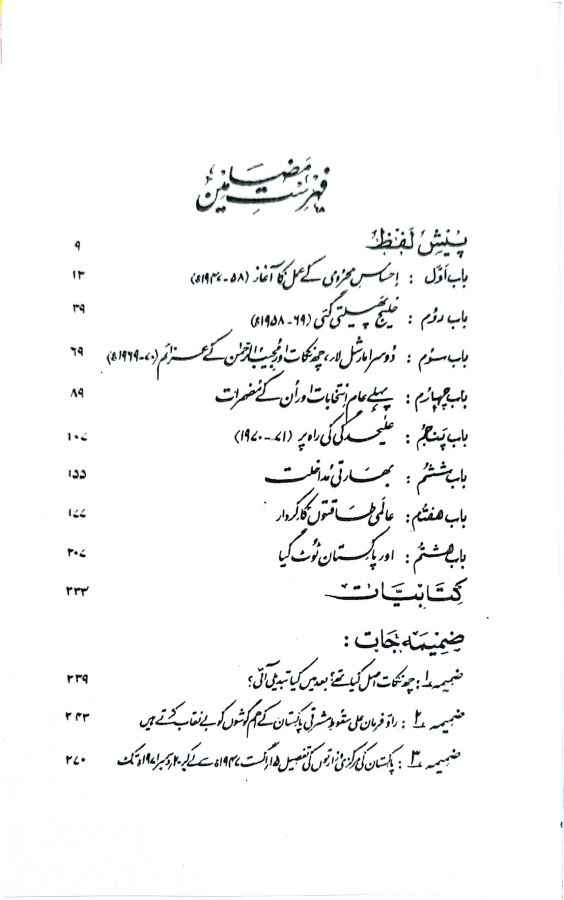 فہرست مضامین
پیش لفظ ۹
باب اوّل : احساسِ محرومی کے عمل کا آغاز (۵۸-۱۹۴۷ء) ۱۳
باب دوم : خلیج پھیلتی گئی (۶۹-۱۹۵۸ء) ۳۹
باب سوم : دوسرا مارشل لاء، چھ نکات اور مجیب الرحمٰن کے عزائم (۷۰-۱۹۶۹ء) ۶۹
باب چہارم : پہلے عام انتخابات اور اُن کے مضمرات ۸۹
باب پنجم : علیحدگی کی راہ پر (۷۱-۱۹۷۰) ۱۰۷
باب ششم : بھارتی مُداخلت ۱۵۵
باب ہفتم : عالمی طاقتوں کا کردار ۱۷۷
باب ہشتم : اور پاکستان ٹوٹ گیا ۲۰۷
کتابیات ۲۳۳
ضمیمہ جات :
ضمیمہ ۱ : چھ نکات اصل کیا تھے؟ بعد میں کیا تبدیلی آئی؟ ۲۳۹
ضمیمہ ۲ : راؤ فرمان علی سقوطِ مشرقی پاکستان کے اہم گوشوں کو بے نقاب کرتے ہیں ۲۴۳
ضمیمہ ۳ : پاکستان کی مرکزی وزارتوں کی تفصیل ۱۵ اگست ۱۹۴۷ء سے لے کر ۲۰ دسمبر ۱۹۷۱ء تک ۲۷۰